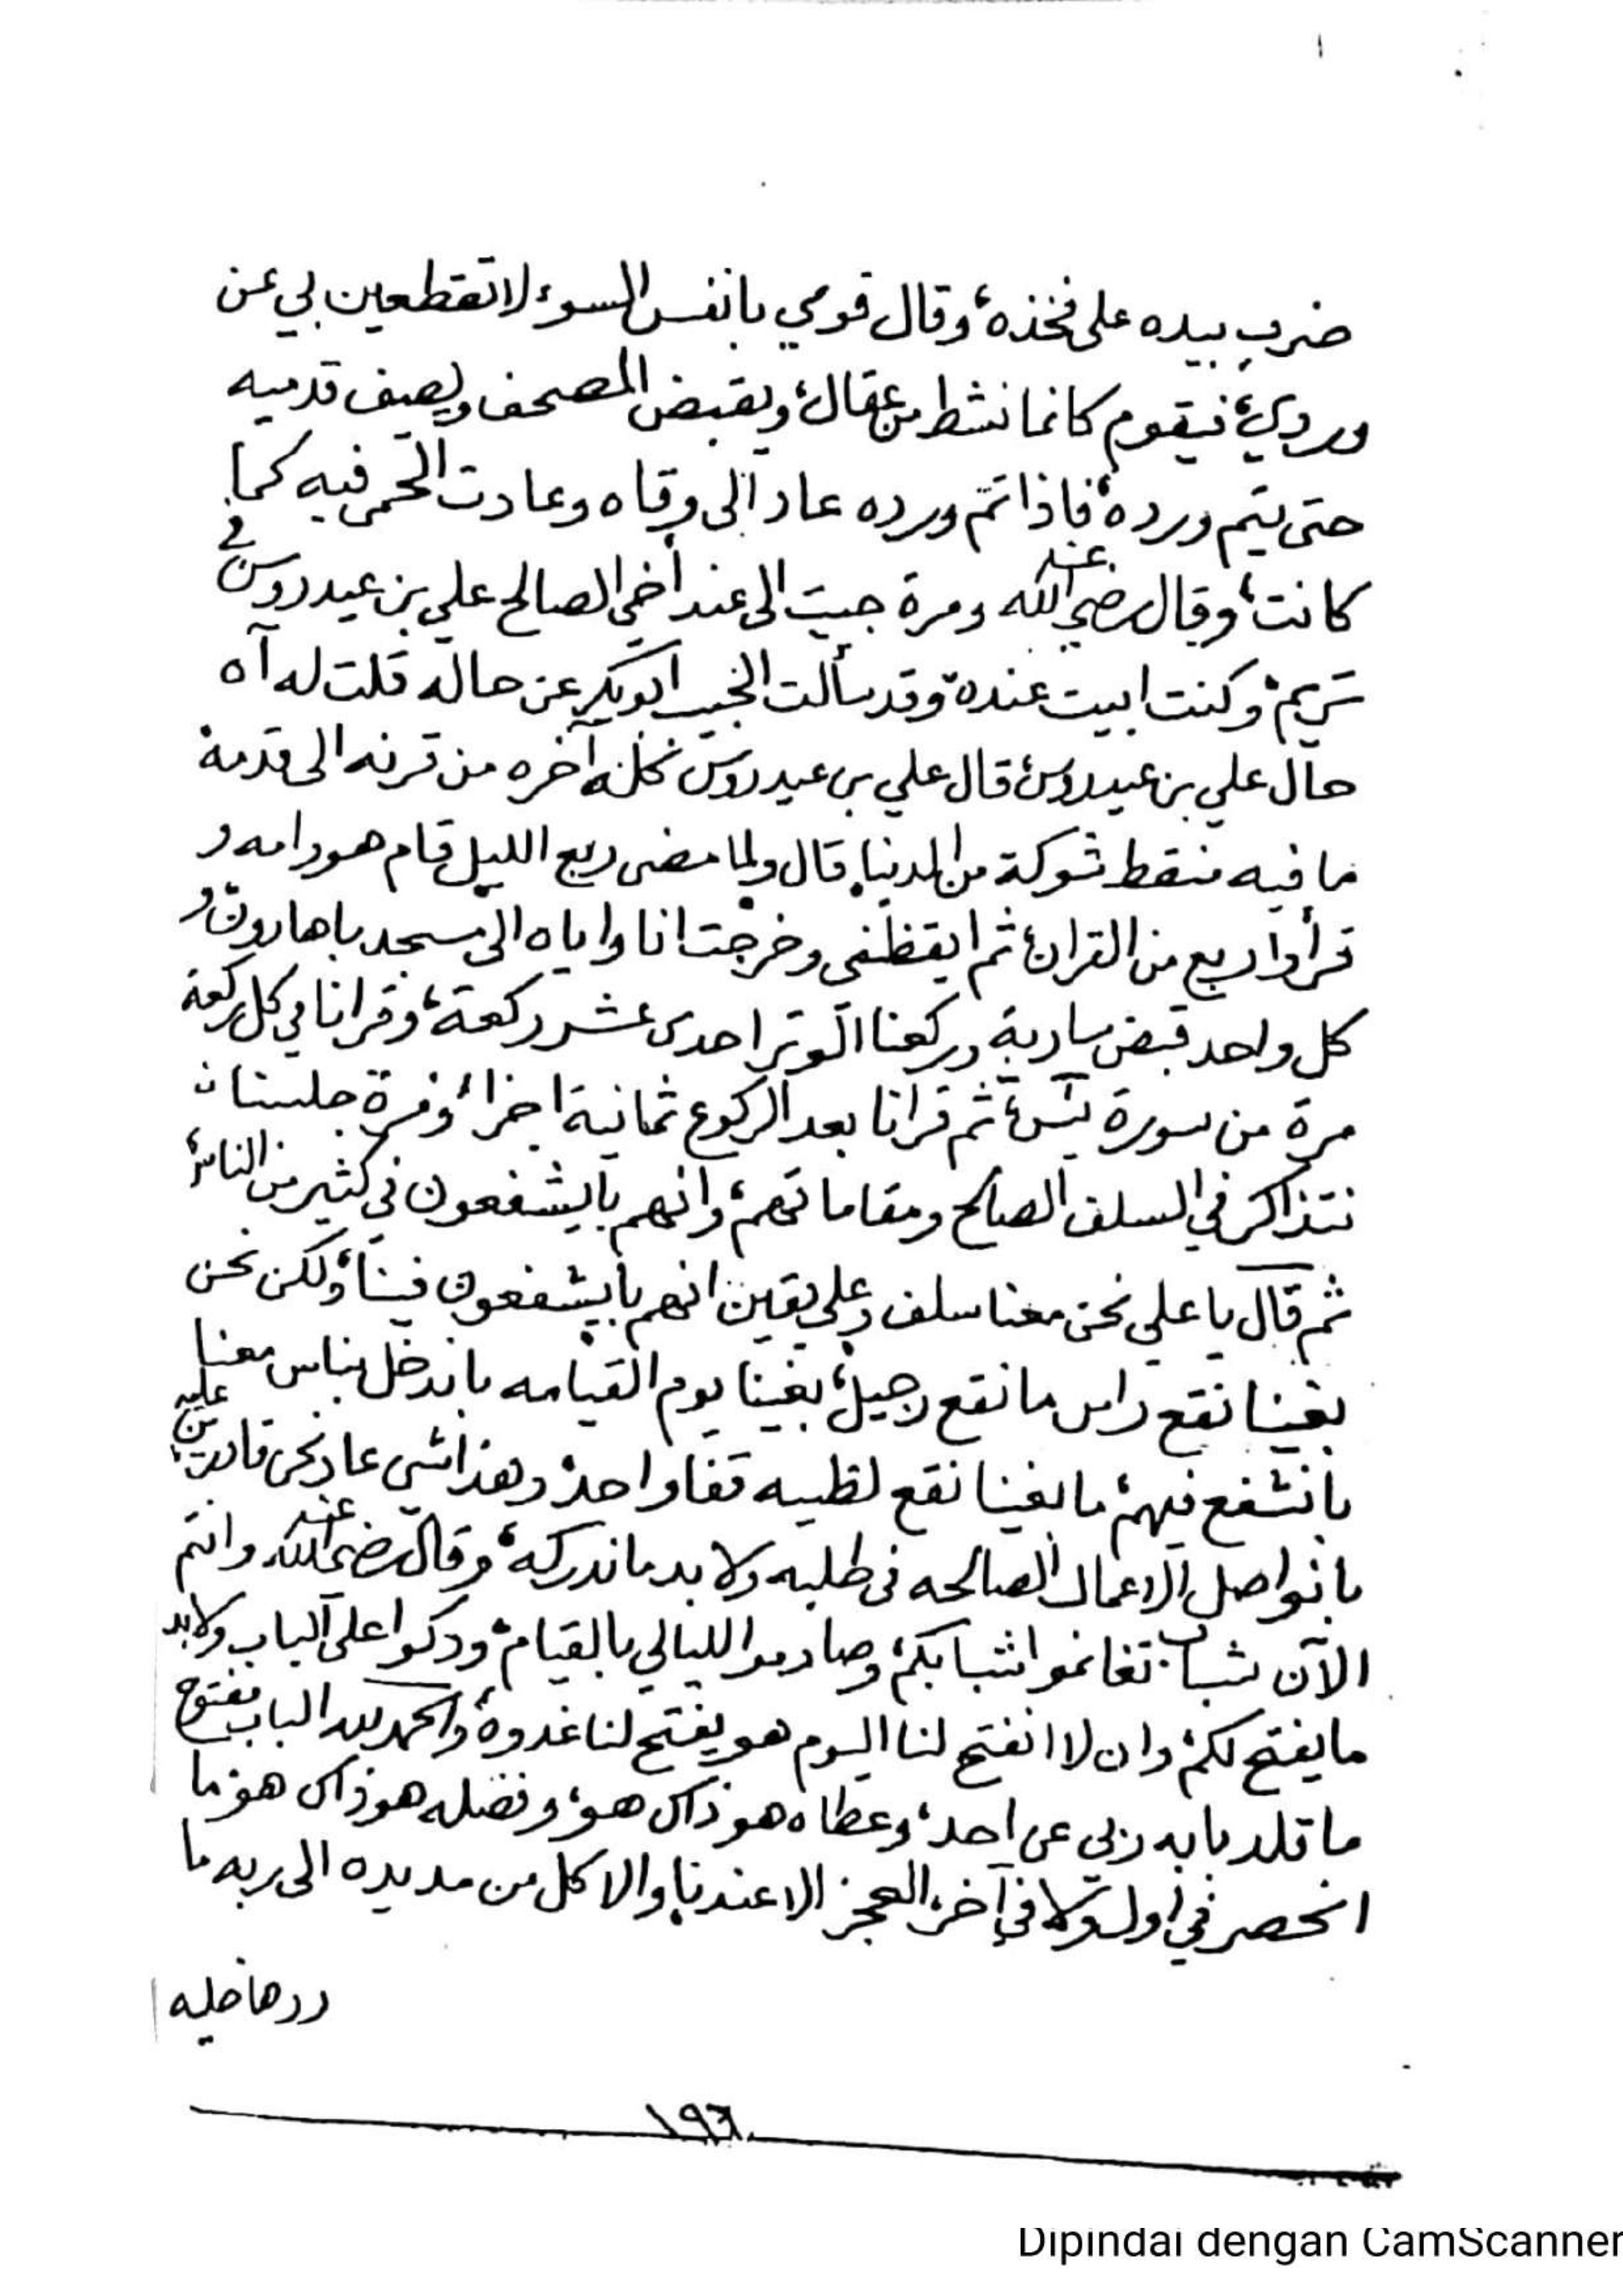 ضرب بيده على فخذه، وقال قومي يانفس السوء لاتقطعين بي عن
وردي، فيقوم كانما نشط من عقال، ويقبض المصحف ويصف قدميه
حتى يتم ورده، فاذا تم ورده عاد الى وقاه وعادت الحمى فيه كما
كانت، وقال رضي الله عنه ومرة جيت الى عند أخي الصالح علي بن عيدروس في
تريم، وكنت ابيت عنده، وقد سألت الحبيب ابوبكر عن حاله قلت له آه
حال علي بن عيدروس، قال علي بن عيدروس كله آخره من قرنه الى قدمه
ما فيه منقط شوكة من الدنيا، قال ولما مضى ربع الليل قام هو
قرأوا ربع من القران، ثم ايقظني وخرجت انا واياه الى مسجد باهارون، و
كل واحد قبض سارية وركعنا الوتر احدى عشر ركعة، وقرانا في كل ركعة
مرة من سورة يس، ثم قرانا بعد الركوع ثمانية اجزا، ومرة جلسنا ن
نتذاكر في السلف الصالح ومقاماتهم، وانهم بايشفعون في كثير من الناس،
ثم قال ياعلي نحن معنا سلف وعلى يقين انهم بايشفعون فينا، ولكن نحن
بغينا نقع راس ما نقع رجيل، بغينا يوم القيامه باندخل بناس معنا
بانشفع فيهم، ما بغينا نقع لظيبه قفا واحد، وهذا شي عاد نحن قادرين عليه
بانواصل الاعمال الصالحه في طلبه ولابد ماندركه، وقال رضي الله عنه وانتم
الآن شباب تغانموا شبابكم، وصادموا الليالي بالقيام، ودكوا على الباب ولابد
مايفتح لكم، وان لا انفتح لنا اليوم هو يفتح لنا غدوه، والحمد لله الباب مفتوح
ما قلد بابه ربي عن احد، وعطاه هو ذاك هو، وفضله هو ذاك هو، ما
انحصر في اول ولا في آخر، العجز الا عندنا، والا كل من مد يده الى ربه ما
ردها خليه
١٩٦
Dipindai dengan CamScanner